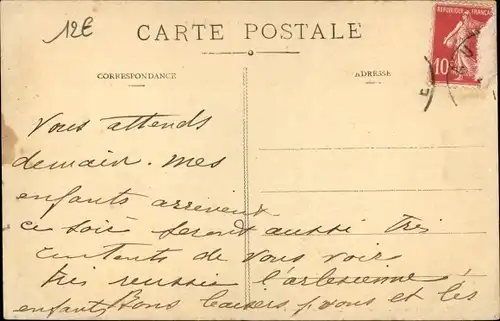 12€
CARTE POSTALE
REPUBLIQUE FRANÇAISE
10
CORRESPONDANCE
ADRESSE
Vous attends
demain. Mes
enfants arrivent
ce soir seront aussi très
contents de vous voir
très reussie l'arlesienne
enfants Bons baisers p. vous et les